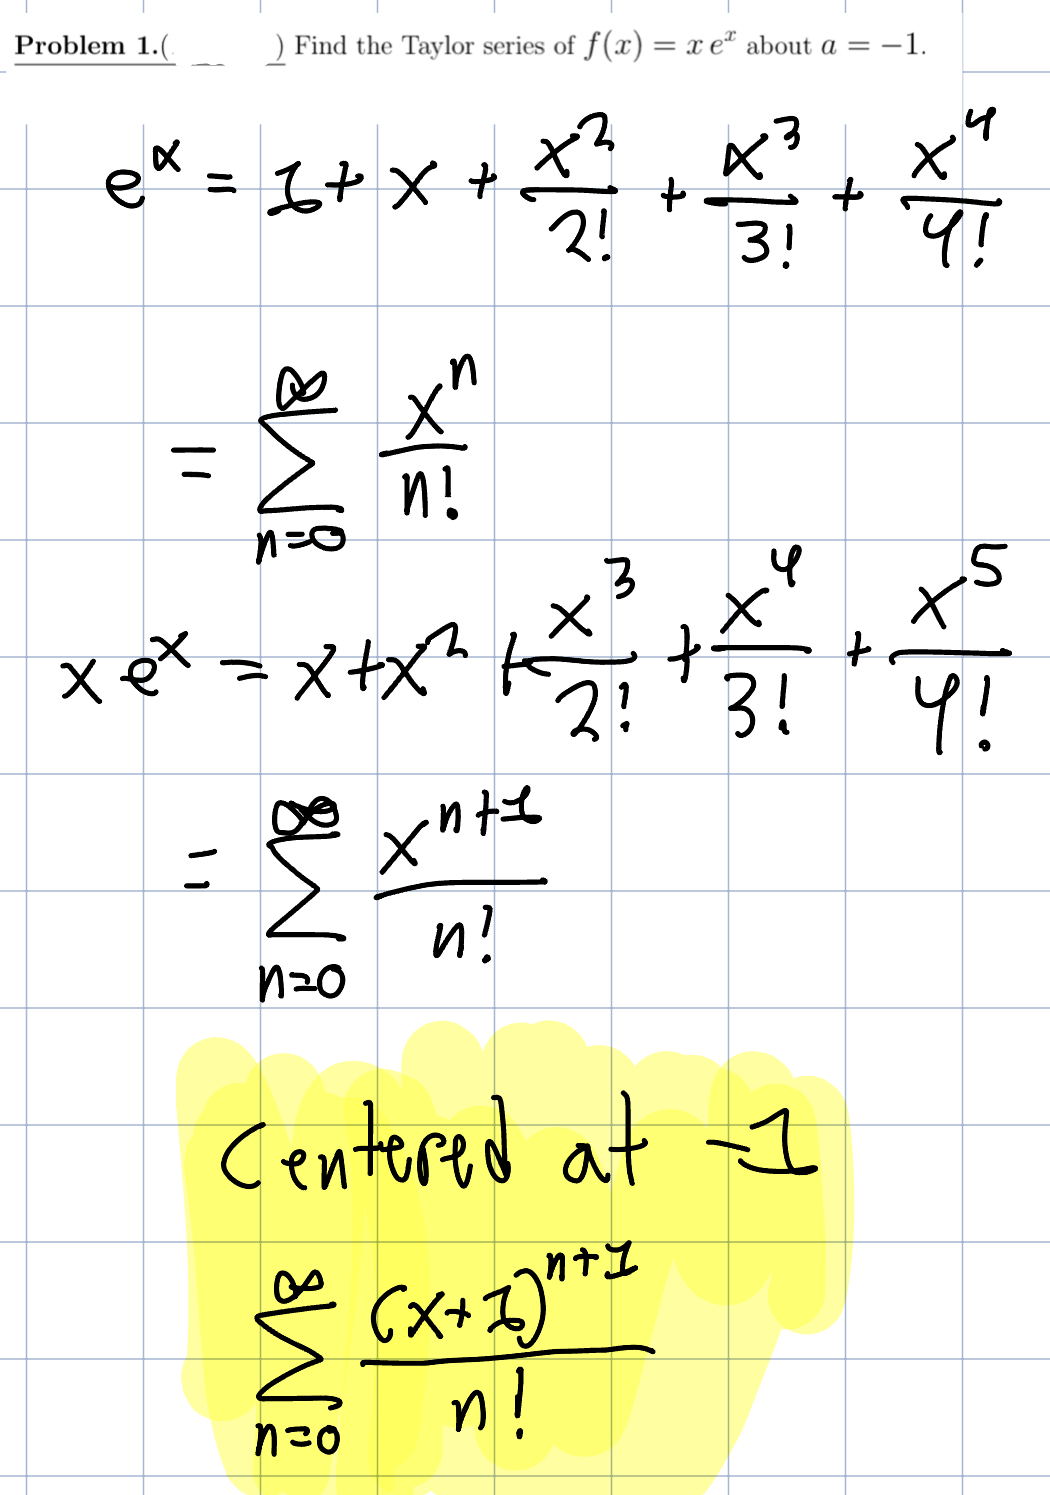 Problem 1.( ) Find the Taylor series of f(x) = x e^x about a = −1.
e^x = 1 + x + x^2/2! + x^3/3! + x^4/4!
= ∑_{n=0}^{∞} x^n/n!
x e^x = x + x^2 + x^3/2! + x^4/3! + x^5/4!
= ∑_{n=0}^{∞} x^{n+1}/n!
Centered at -1
∑_{n=0}^{∞} (x+1)^{n+1}/n!